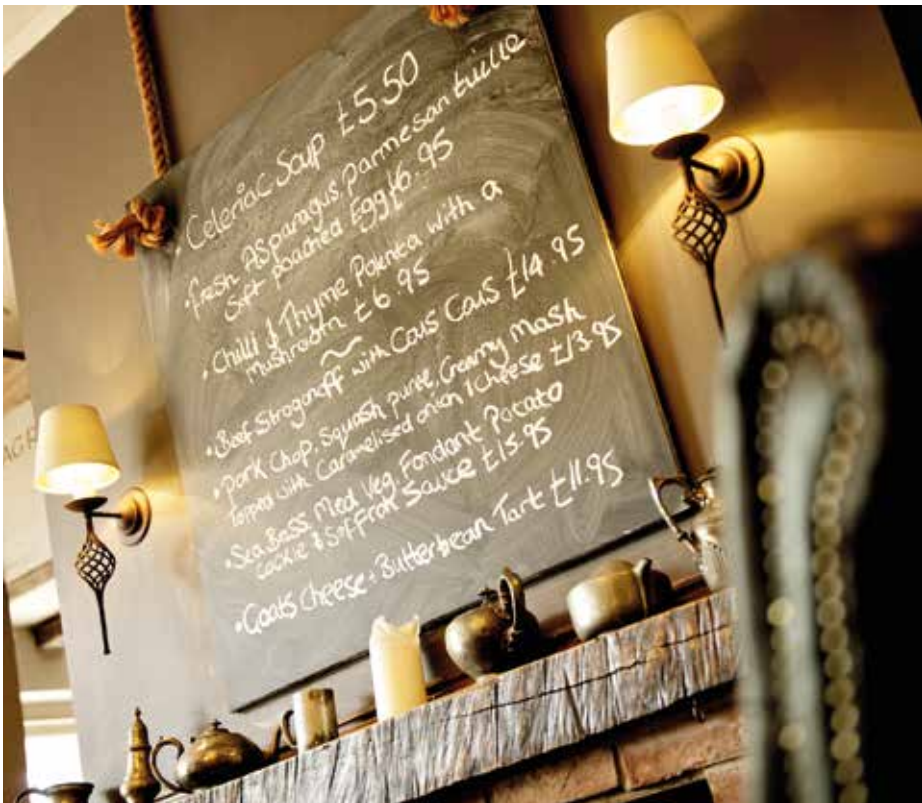 • Celeriac Soup £5.50
• Fresh Asparagus, parmesan tuille
Soft poached Egg £6.95
• Chilli & Thyme Polenta with a
mushroom £6.95
~
• Beef Strogonoff with Cous Cous £14.95
• Pork Chop, Squash puree, Creamy Mash
topped with Caramelised onion & Cheese £13.95
• Sea Bass, Med Veg, Fondant Potato
Cockle & Saffron Sauce £15.95
• Goats Cheese + Butterbean Tart £11.95